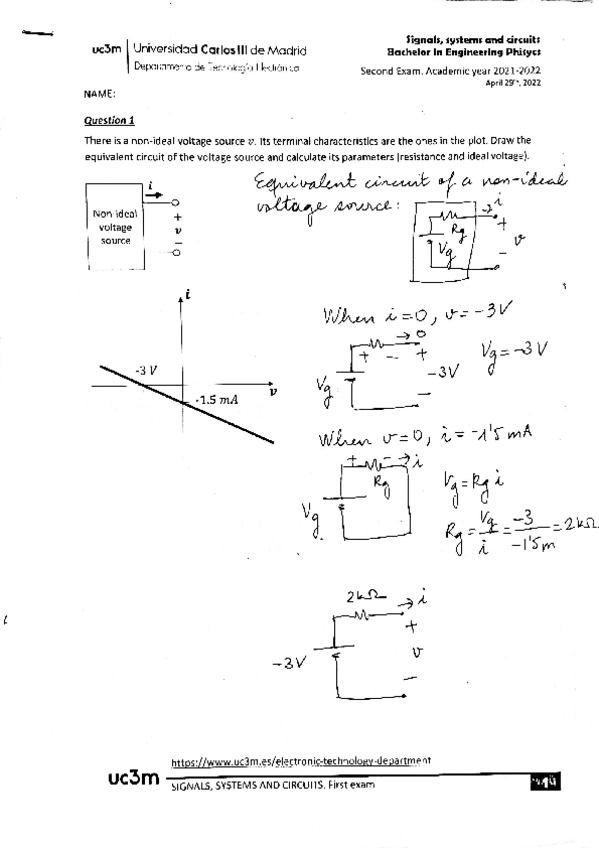 uc3m Universidad Carlos III de Madrid
Departamento de Tecnología Electrónica
Signals, systems and circuits
Bachelor in Engineering Phisycs
Second Exam. Academic year 2021-2022
April 29TH, 2022
NAME:
Question 1
There is a non-ideal voltage source v. Its terminal characteristics are the ones in the plot. Draw the
equivalent circuit of the voltage source and calculate its parameters (resistance and ideal voltage).
Non ideal
voltage
source
i
+
v
−
Equivalent circuit of a non-ideal
voltage source:
Rg
Vg
i
+
v
−
i
-3 V
-1.5 mA
v
When i=0, v=-3V
0
+ − +
Vg
-3V
−
Vg=-3V
When v=0, i=-1'5mA
+ − i
Rg
Vg
Vg=Rg i
Rg=Vg/i=-3/-1'5m=2kΩ
2kΩ
i
+
v
−
-3V
https://www.uc3m.es/electronic-technology-department
uc3m SIGNALS, SYSTEMS AND CIRCUITS. First exam